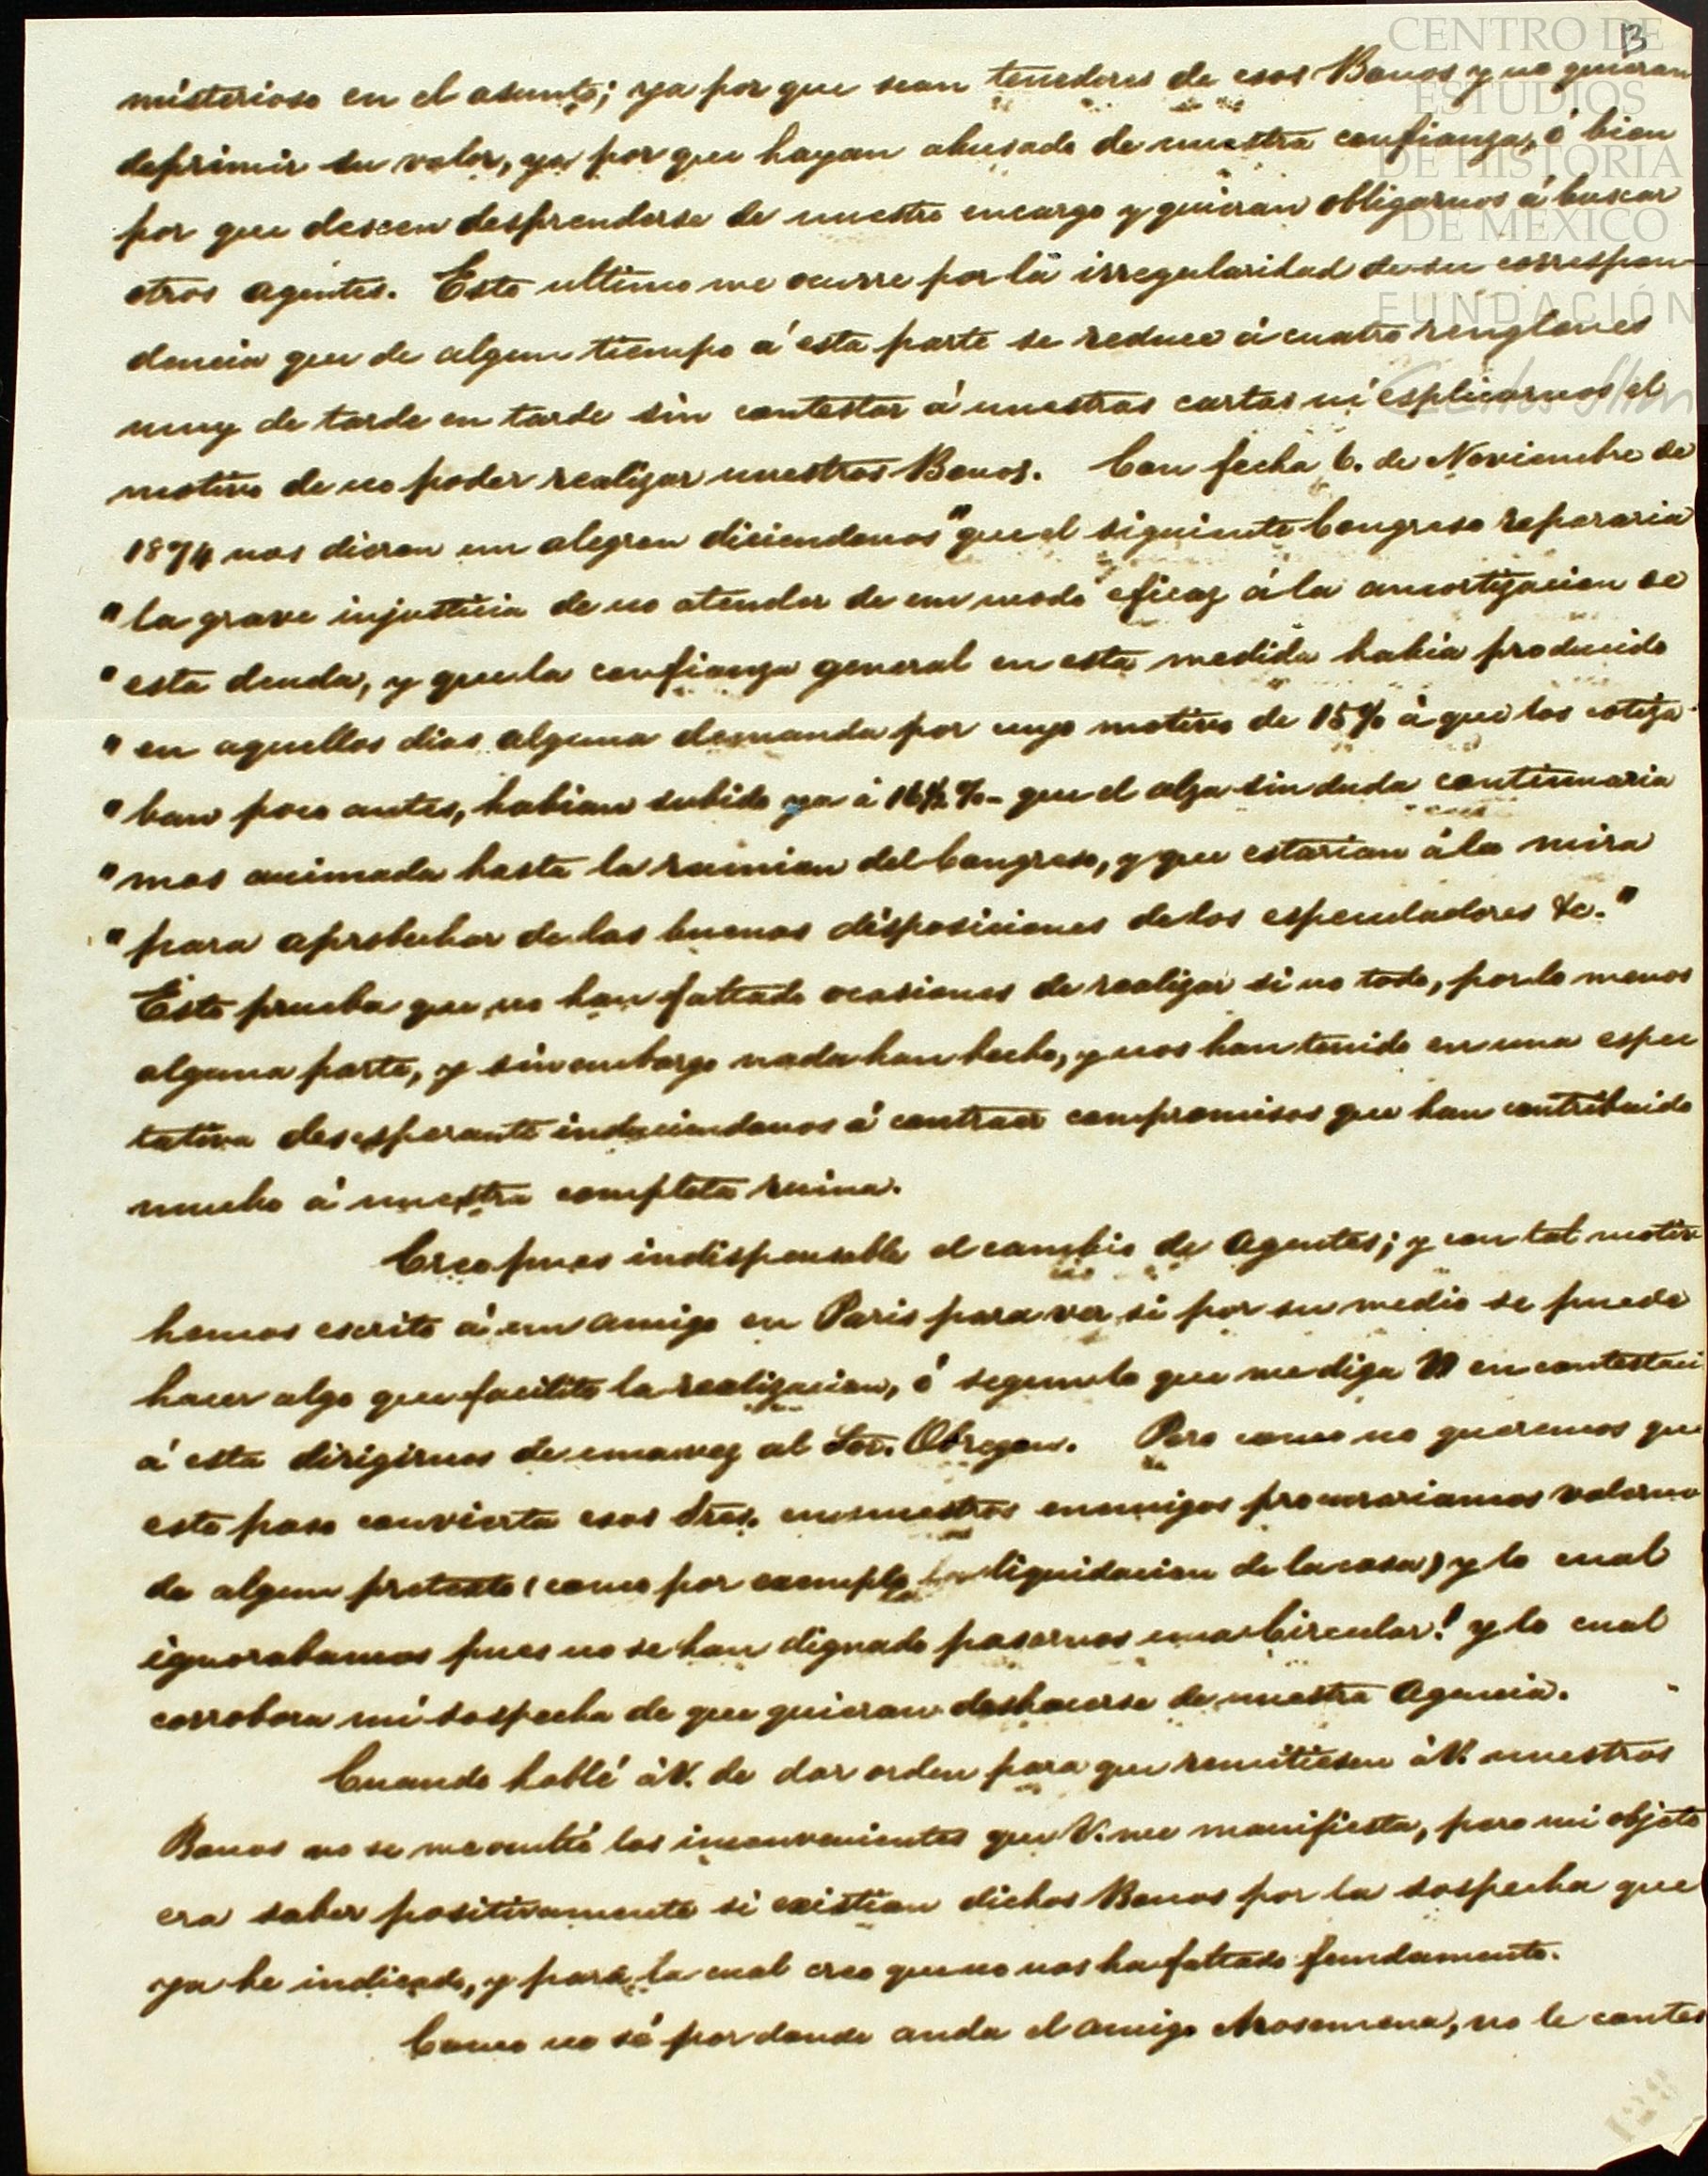 CENTRO DE
ESTUDIOS
DE HISTORIA
DE MEXICO
FUNDACIÓN
Carlos Slim
13
misterioso en el asunto; ya por que sean tenedores de esos Bonos y no quieran
deprimir su valor, ya por que hayan abusado de nuestra confianza, ó bien
por que deseen desprenderse de nuestro encargo y quieran obligarnos á buscar
otros agentes. Esto ultimo me ocurre por la irregularidad de su correspon-
dencia que de algun tiempo á esta parte se reduce á cuatro renglones
muy de tarde en tarde sin contestar á nuestras cartas ni esplicarnos el
motivo de no poder realizar nuestros Bonos. Con fecha 6. de Noviembre de
1874 nos dieron un alegron diciendonos "que el siguiente Congreso repararia
"la grave injusticia de no atender de un modo eficaz á la amortizacion de
"esta deuda, y que la confianza general en esta medida habia producido
"en aquellos dias alguna demanda por cuyo motivo de 15% á que los cotiza-
"ban poco antes, habian subido ya á 16½ %- que el alza sin duda continuaria
"mas animada hasta la reunion del Congreso, y que estarian á la mira
"para aprobechar de las buenas disposiciones de los especuladores &c."
Esto prueba que no han faltado ocasiones de realizar si no todo, por lo menos
alguna parte, y sin embargo nada han hecho, y nos han tenido en una espec
tativa desesperante induciendonos á contraer compromisos que han contribuido
mucho á nuestra completa ruina.
Creo pues indispensable el cambio de Agentes; y con tal motiv
hemos escrito á un amigo en Paris para ver si por su medio se puede
hacer algo que facilite la realizacion, ó segun lo que me diga V en contestaci
á esta dirigirnos de una vez al Sor. Obregon. Pero como no queremos que
este paso convierta esos Sres. en nuestros enemigos procurariamos valernos
de algun pretexto (como por exemplo la liquidacion de la casa) y lo cual
ignorabamos pues no se han dignado pasarnos una Circular! y lo cual
corrobora mi sospecha de que quieran deshacerse de nuestra Agencia.
Cuando hablé á V. de dar orden para que remitiesen á V. nuestros
Bonos no se me ocultó los inconvenientes que V. me manifiesta, pero mi objeto
era saber positivamente si existian dichos Bonos por la sospecha que
ya he indicado, y para la cual creo que no nos ha faltado fundamento.
Como no sé por donde anda el amigo Arosemena, no le contes
128